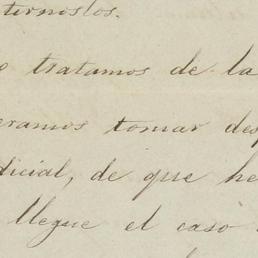 ternoslos.
tratamos de la
eramos tomar des
dicial, de que he
llegue el caso